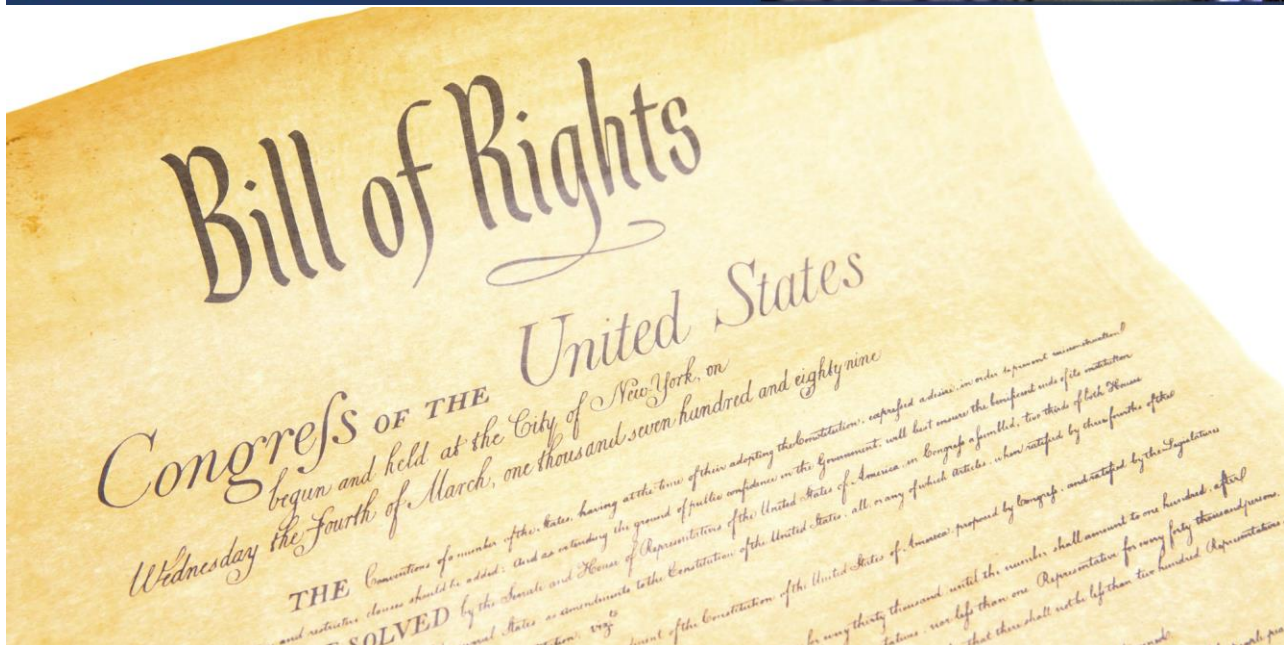 Bill of Rights
Congreſs OF THE United States
begun and held at the City of New-York, on
Wednesday the Fourth of March, one thousand seven hundred and eighty nine
THE Conventions of a number of the States, having at the time of their adopting the Constitution, expreſsed a desire, in order to prevent misconstruction
and restrictive clauses should be added: And as extending the ground of public confidence in the Government, will best ensure the beneficent ends of its institution
SOLVED by the Senate and House of Representatives of the United States of America, in Congreſs aſsembled, two thirds of both Houses
States as amendments to the Constitution of the United States, all, or any of which Articles, when ratified by three fourths of the
vizt
of the Constitution of the United States of America, proposed by Congreſs, and ratified by the Legislatures
for every thirty thousand, until the number shall amount to one hundred, after
nor leſs than one Representative for every forty thousand persons
that there shall not be leſs than two hundred Representatives